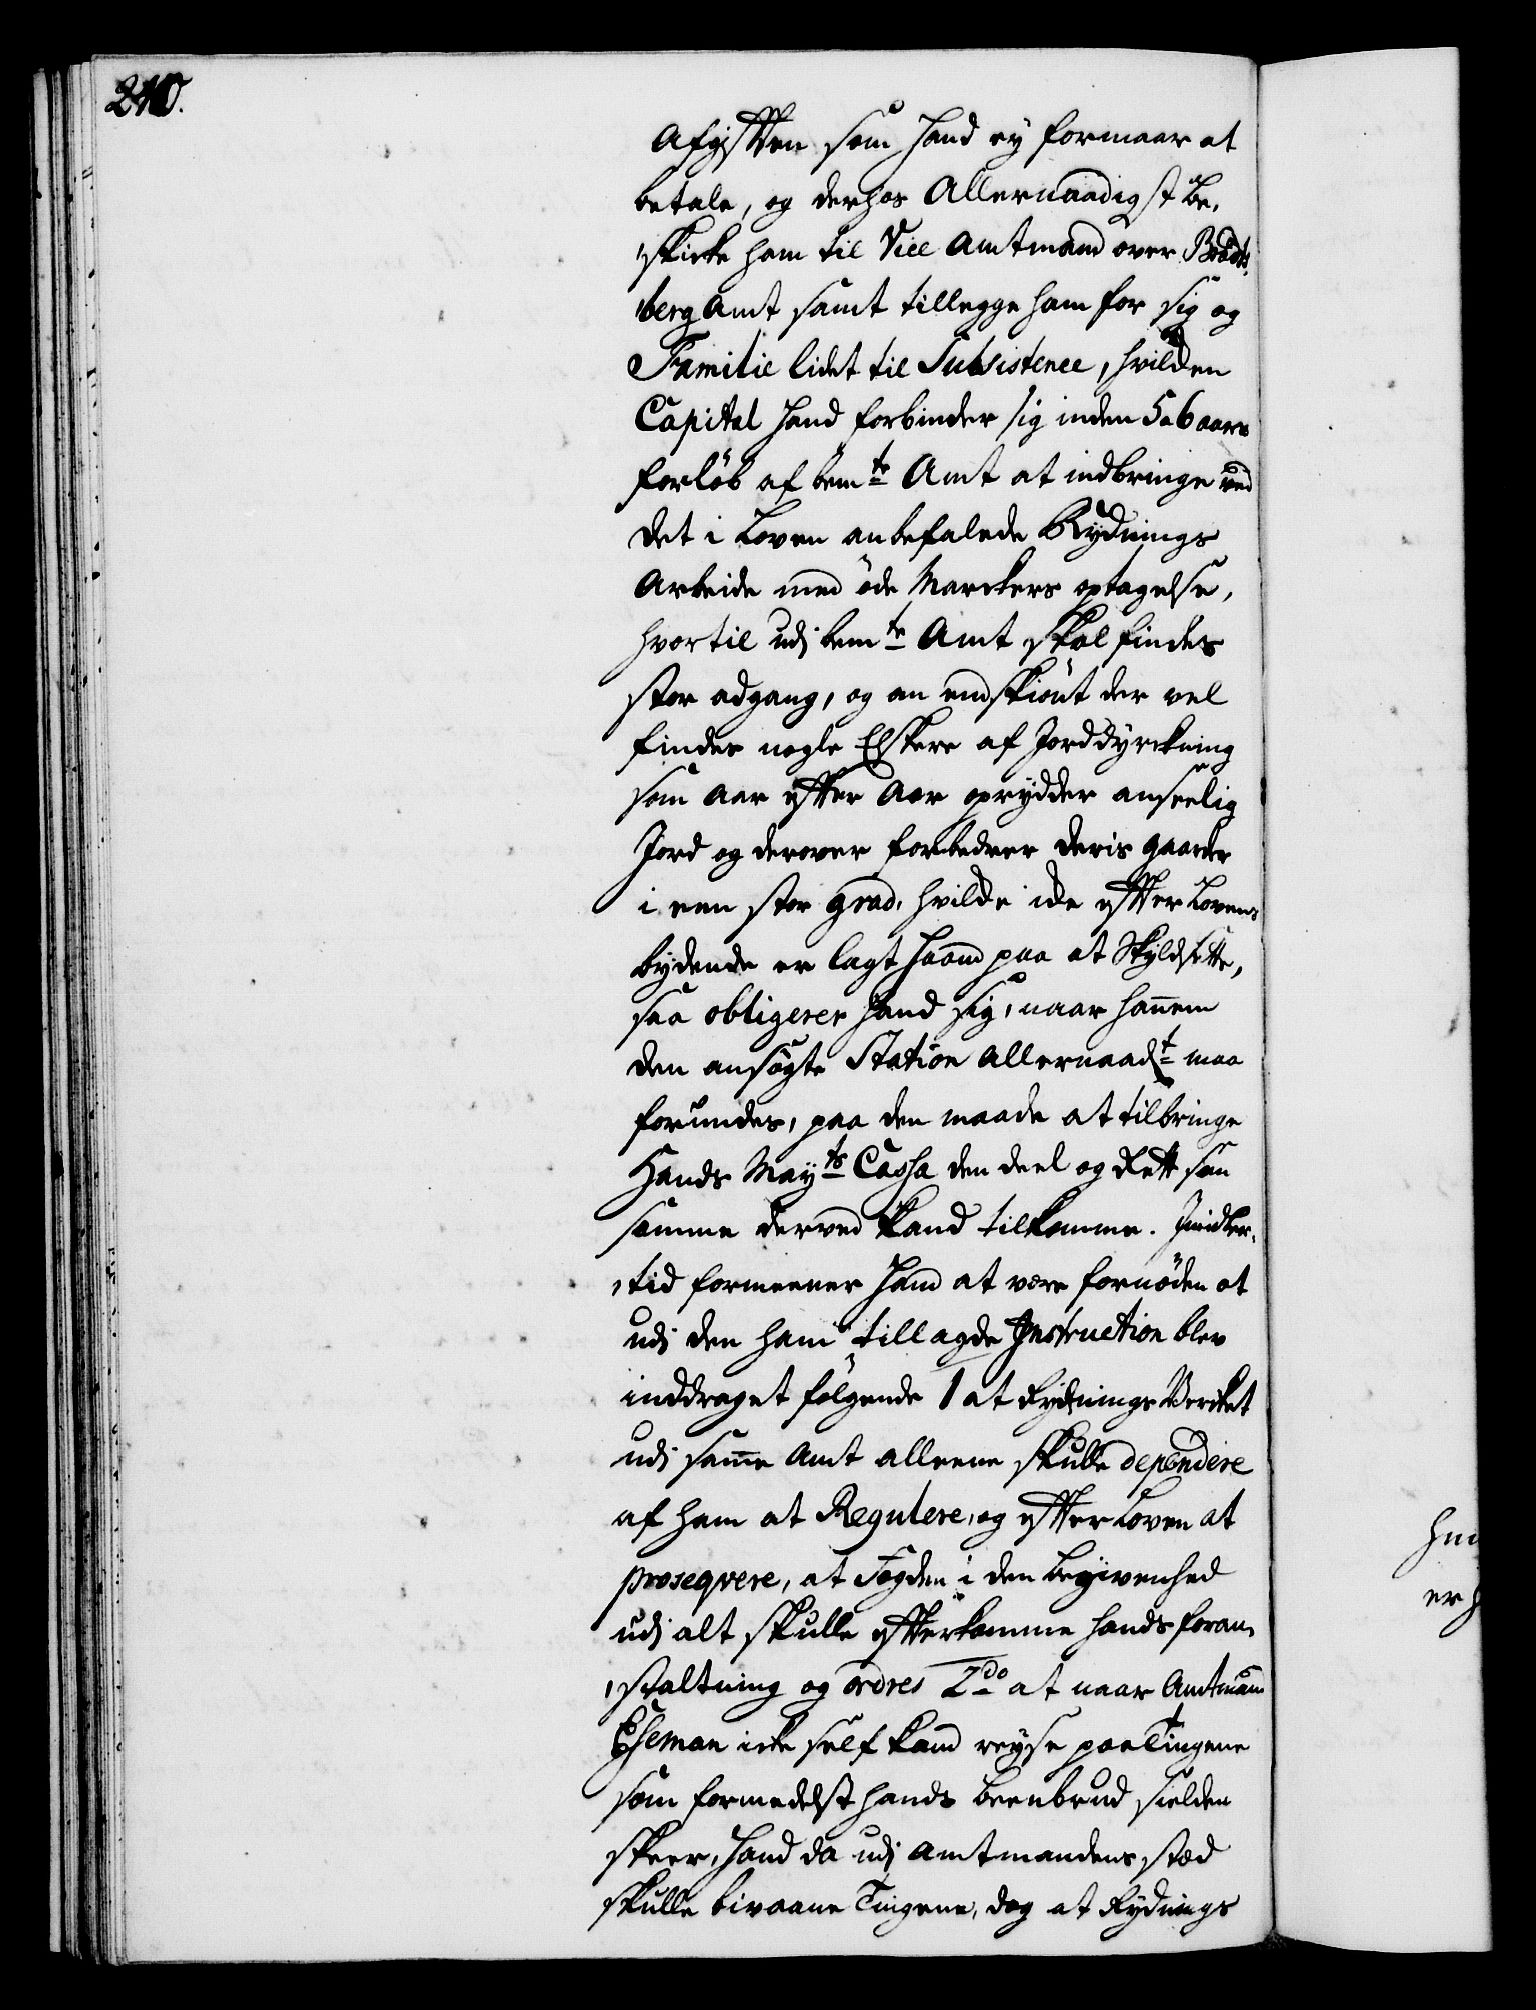 240.
Afgifften som hand ey formaar at
betale, og derhos Allernaadigst be-
skicke ham til Vice Amtmand over Bradts-
berg Amt samt tillegge ham for sig og
Familie lidet til Subsistence, hvilcken
Capital hand forbinder sig inden 5 a 6 aars
forløb af bemte Amt at indbringe ved
det i Loven anbefalede Rydnings
Arbeide med øde Marckers optagelse,
hvortil udj bemte Amt skal findes
stor adgang, og an endskiønt der vel
findes nogle Elskere af Jorddyrckning
som Aar effter Aar oprydder anseelig
Jord og derover forbedrer deris gaarder
i een stor grad, hvilcke icke effter Lovens
bydende er lagt haand paa at Skyldsette,
saa obligerer hand sig, naar hannem
den ansøgte Station Allernaadt maa
forundes, paa den maade at tilbringe
Hands Mayts Cassa den deel og Rett som
samme derved kand tilkomme. Imidler-
tid formeener hand at være fornøden at
udj den ham tillagde Instruction blev
inddraget følgende 1 at Rydnings Vercket
udj samme Amt alleene skulle dependere
af ham at Regulere, og effter Loven at
proseqvere, at Fogden i den begivenhed
udj alt skulle effterkomme hands foran-
staltning og ordres 2do at naar Amtmand
Eseman icke self kand reyse paa Tingene
som formedelst hands beenbrud sielden
skeer, hand da udj Amtmandens sted
skulle bivaane Tingene, dog at Rydnings